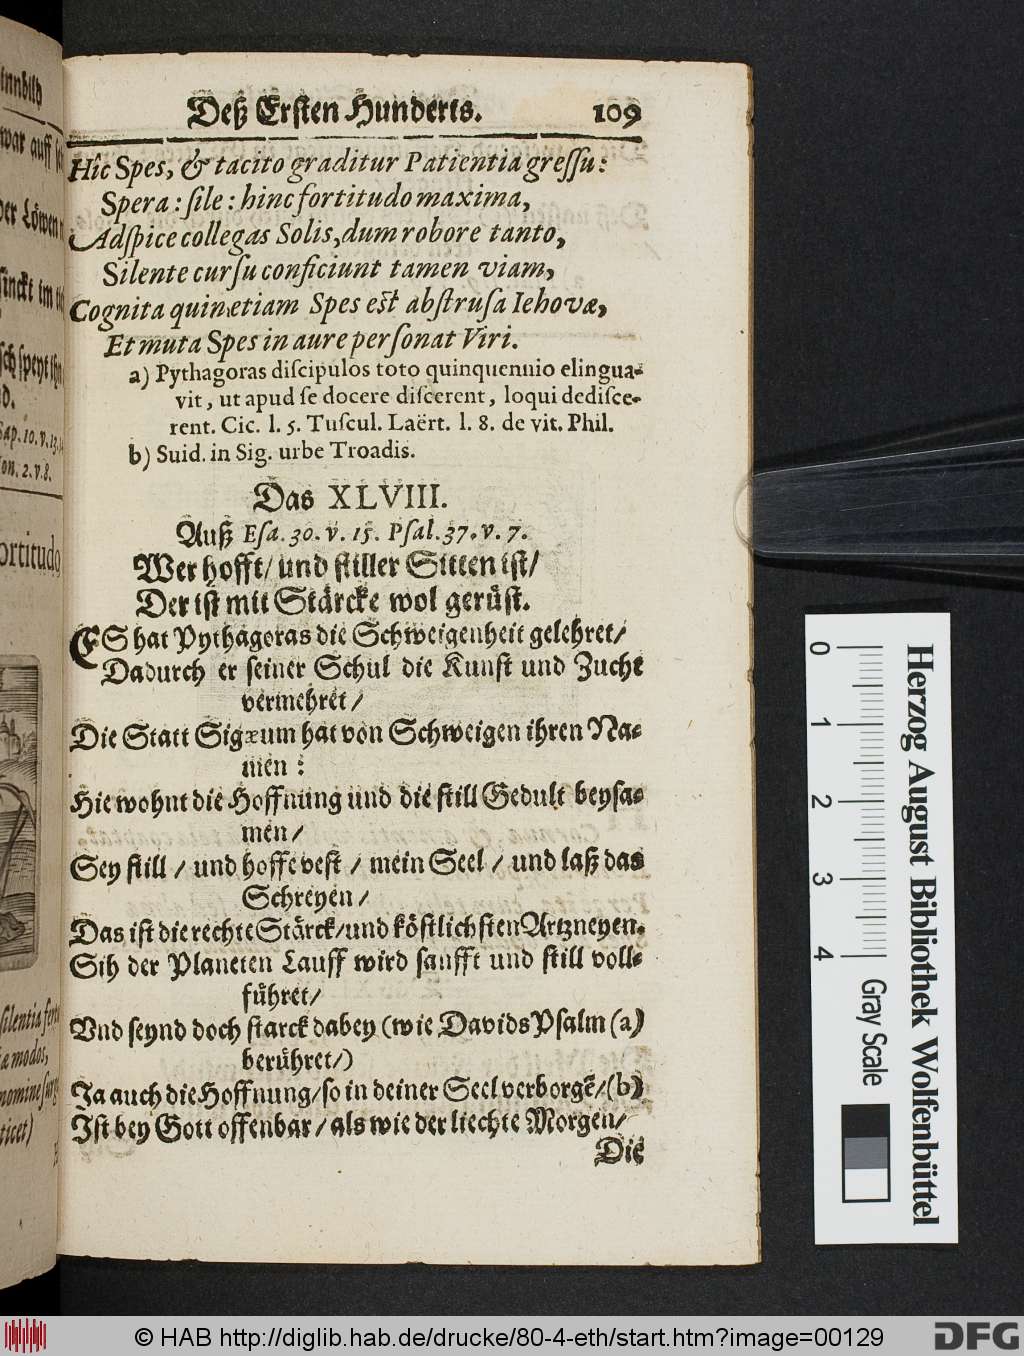 Deß Ersten Hunderts. 109
Hîc Spes, & tacito graditur Patientia gressu:
Spera: sile: hinc fortitudo maxima,
Adspice collegas Solis, dum robore tanto,
Silente cursu conficiunt tamen viam,
Cognita quin etiam Spes est abstrusa Iehovæ,
Et muta Spes in aure personat Viri.
a) Pythagoras discipulos toto quinquennio elingua-
vit, ut apud se docere discerent, loqui dedisce-
rent. Cic. l. 5. Tuscul. Laërt. l. 8. de vit. Phil.
b) Suid. in Sig. urbe Troadis.
Das XLVIII.
Auß Esa. 30. v. 15. Psal. 37. v. 7.
Wer hofft / und stiller Sitten ist /
Der ist mit Stärcke wol gerüst.
ES hat Pythagoras die Schweigenheit gelehret /
Dadurch er seiner Schul die Kunst und Zucht
vermehret /
Die Statt Sigæum hat von Schweigen ihren Na-
men :
Hie wohnt die Hoffnung und die still Gedult beysa-
men /
Sey still / und hoffe vest / mein Seel / und laß das
Schreyen /
Das ist die rechte Stärck / und köstlichsten Artzneyen.
Sih der Planeten Lauff wird sanfft und still voll-
führet /
Vnd seynd doch starck dabey (wie Davids Psalm (a)
berühret /)
Ja auch die Hoffnung / so in deiner Seel verborgẽ / (b)
Ist bey Gott offenbar / als wie der liechte Morgen /
Die
war auff
der Löwen
sinckt im
Sap. 10. v. 13.
2. v. 8.
ortitudo
silentia
modos,
nomine
Herzog August Bibliothek Wolfenbüttel
0 1 2 3 4
Gray Scale
© HAB http://diglib.hab.de/drucke/80-4-eth/start.htm?image=00129
DFG